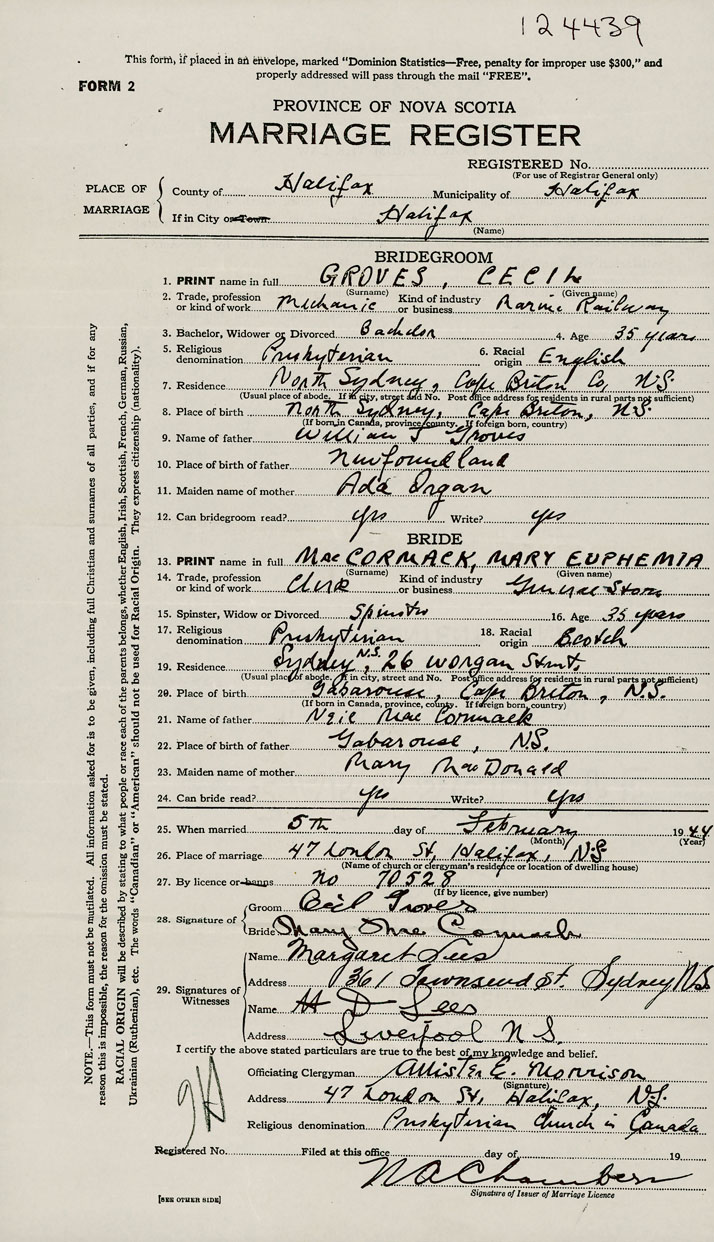 124439
This form, if placed in an envelope, marked "Dominion Statistics—Free, penalty for improper use $300," and
properly addressed will pass through the mail "FREE".
FORM 2
PROVINCE OF NOVA SCOTIA
MARRIAGE REGISTER
REGISTERED No.
(For use of Registrar General only)
PLACE OF MARRIAGE
County of Halifax Municipality of Halifax
If in City or Town Halifax
(Name)
BRIDEGROOM
1. PRINT name in full GROVES, CECIL
(Surname) (Given name)
2. Trade, profession or kind of work Mechanic Kind of industry or business Marine Railway
3. Bachelor, Widower or Divorced Bachelor 4. Age 35 years
5. Religious denomination Presbyterian 6. Racial origin English
7. Residence North Sydney, Cape Briton Co, N.S.
(Usual place of abode. If in city, street and No. Post office address for residents in rural parts not sufficient)
8. Place of birth North Sydney, Cape Briton, N.S.
(If born in Canada, province, county. If foreign born, country)
9. Name of father William J Groves
10. Place of birth of father Newfoundland
11. Maiden name of mother Ada Organ
12. Can bridegroom read? yes Write? yes
BRIDE
13. PRINT name in full MacCORMACK, MARY EUPHEMIA
(Surname) (Given name)
14. Trade, profession or kind of work Clerk Kind of industry or business General Store
15. Spinster, Widow or Divorced Spinster 16. Age 35 years
17. Religious denomination Presbyterian 18. Racial origin Scotch
19. Residence Sydney N.S. 26 Worgan Street
(Usual place of abode. If in city, street and No. Post office address for residents in rural parts not sufficient)
20. Place of birth Gabarouse, Cape Briton, N.S.
(If born in Canada, province, county. If foreign born, country)
21. Name of father Neil MacCormack
22. Place of birth of father Gabarouse, N.S.
23. Maiden name of mother Mary MacDonald
24. Can bride read? yes Write? yes
25. When married 5th day of February 1944
(Month) (Year)
26. Place of marriage 47 London St, Halifax, N.S.
(Name of church or clergyman's residence or location of dwelling house)
27. By licence or banns no 70528
(If by licence, give number)
28. Signature of
Groom Cecil Groves
Bride Mary MacCormack
29. Signatures of Witnesses
Name Margaret Lees
Address 361 Townsend St. Sydney N.S
Name H D Lees
Address Liverpool N S.
I certify the above stated particulars are true to the best of my knowledge and belief.
Officiating Clergyman Allister C. Morrison
(Signature)
Address 47 London St, Halifax, N.S.
Religious denomination Presbyterian Church in Canada
Registered No. Filed at this office day of 19
N A Chambers
Signature of Issuer of Marriage Licence
[SEE OTHER SIDE]
NOTE.—This form must not be mutilated. All information asked for is to be given, including full Christian and surnames of all parties, and if for any
reason this is impossible, the reason for the omission must be stated.
RACIAL ORIGIN will be described by stating to what people or race each of the parents belongs, whether English, Irish, Scottish, French, German, Russian,
Ukrainian (Ruthenian), etc. The words "Canadian" or "American" should not be used for Racial Origin. They express citizenship (nationality).